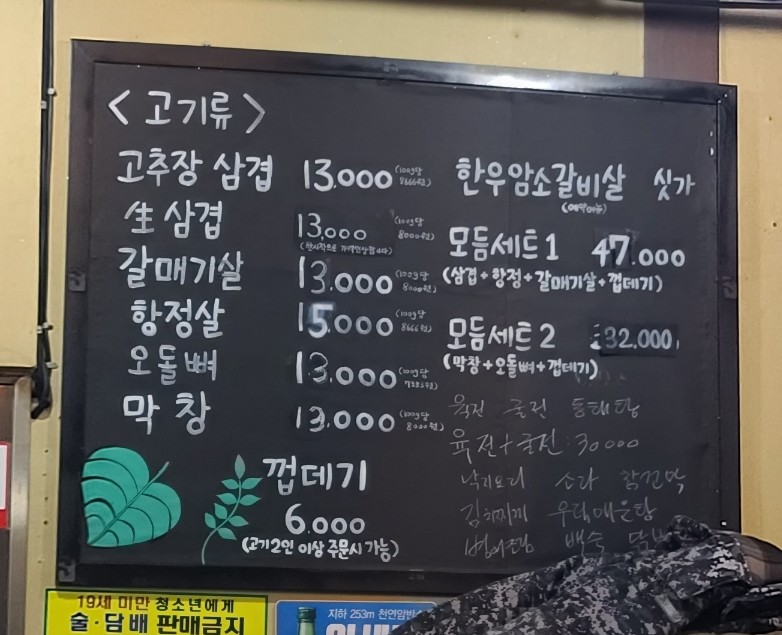 < 고기류 >
고추장 삼겹 13.000 (100g당 8666원)
生 삼겹 13.000 (100g당 8000원)
갈매기살 13.000 (100g당 8000원)
항정살 15.000 (100g당 8666원)
오돌뼈 13.000 (100g당
막창 13.000 (100g당 8000원)
껍데기
6.000
(고기2인 이상 주문시 가능)
한우암소갈비살 싯가
모듬세트1 47.000
(삼겹+항정+갈매기살+껍데기)
모듬세트2 32.000
(막창+오돌뼈+껍데기)
육전 굴전 동태탕
육전+굴전 30000
낙지요리 소라 참꼬막
김치찌개
백숙
19세 미만 청소년에게
술·담배 판매금지
지하 253m 천연암반수